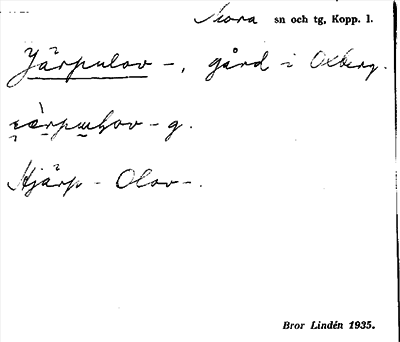 Mora sn och tg, Kopp. l.
Järpulov-, gård i Oxberg.
Hjärp - Olov-.
Bror Lindén 1935.